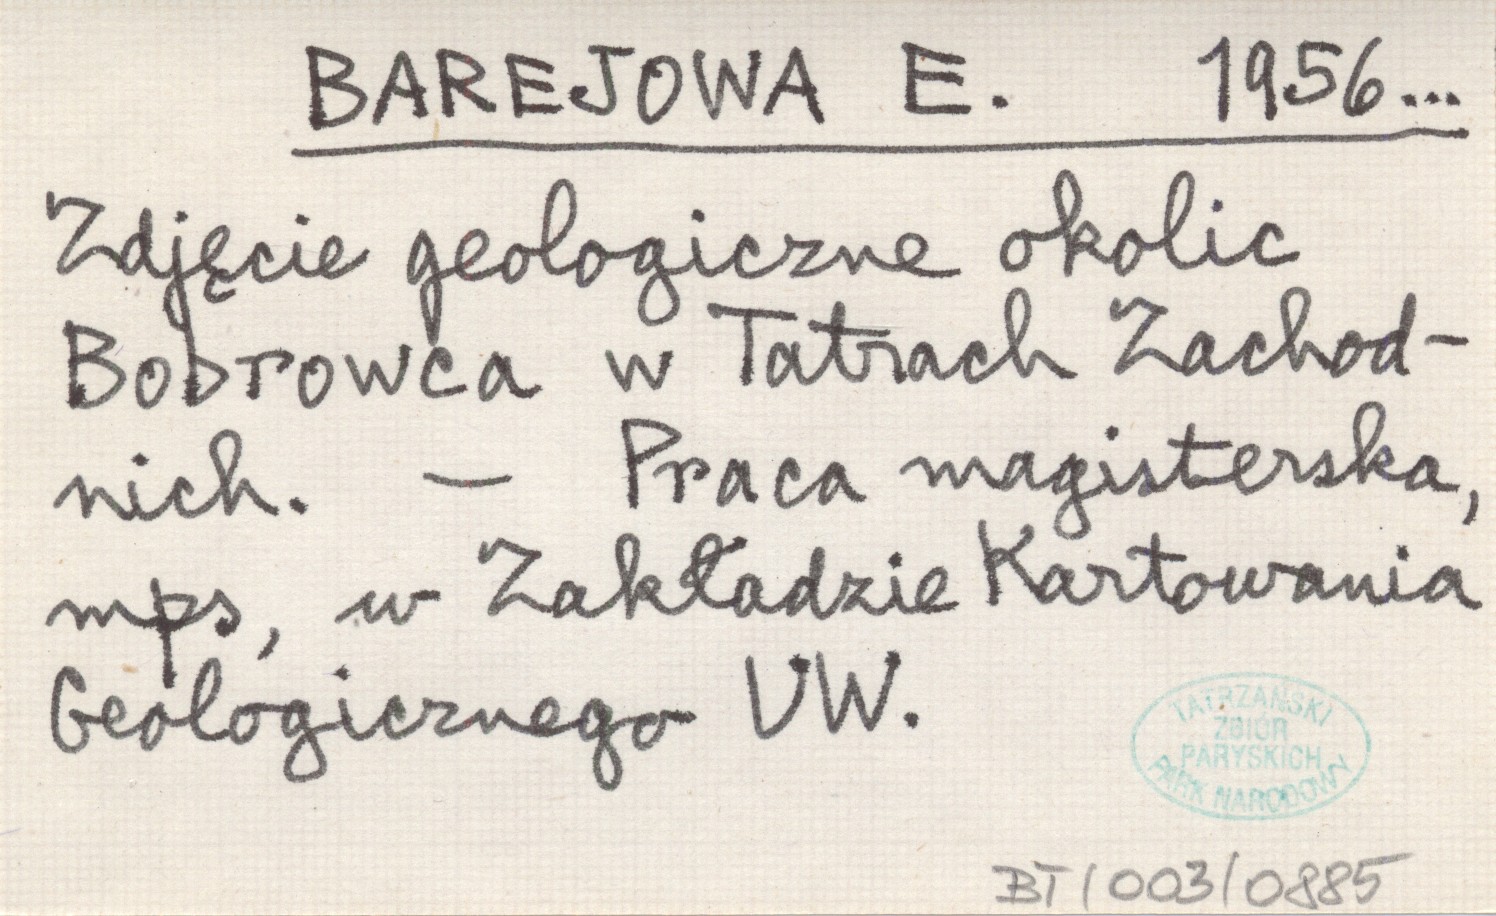 BAREJOWA E. 1956...
Zdjęcie geologiczne okolic
Bobrowca w Tatrach Zachod-
nich. — Praca magisterska,
mps, w Zakładzie Kartowania
Geologicznego UW.
TATRZAŃSKI
ZBIÓR
PARYSKICH
PARK NARODOWY
BT/003/0885